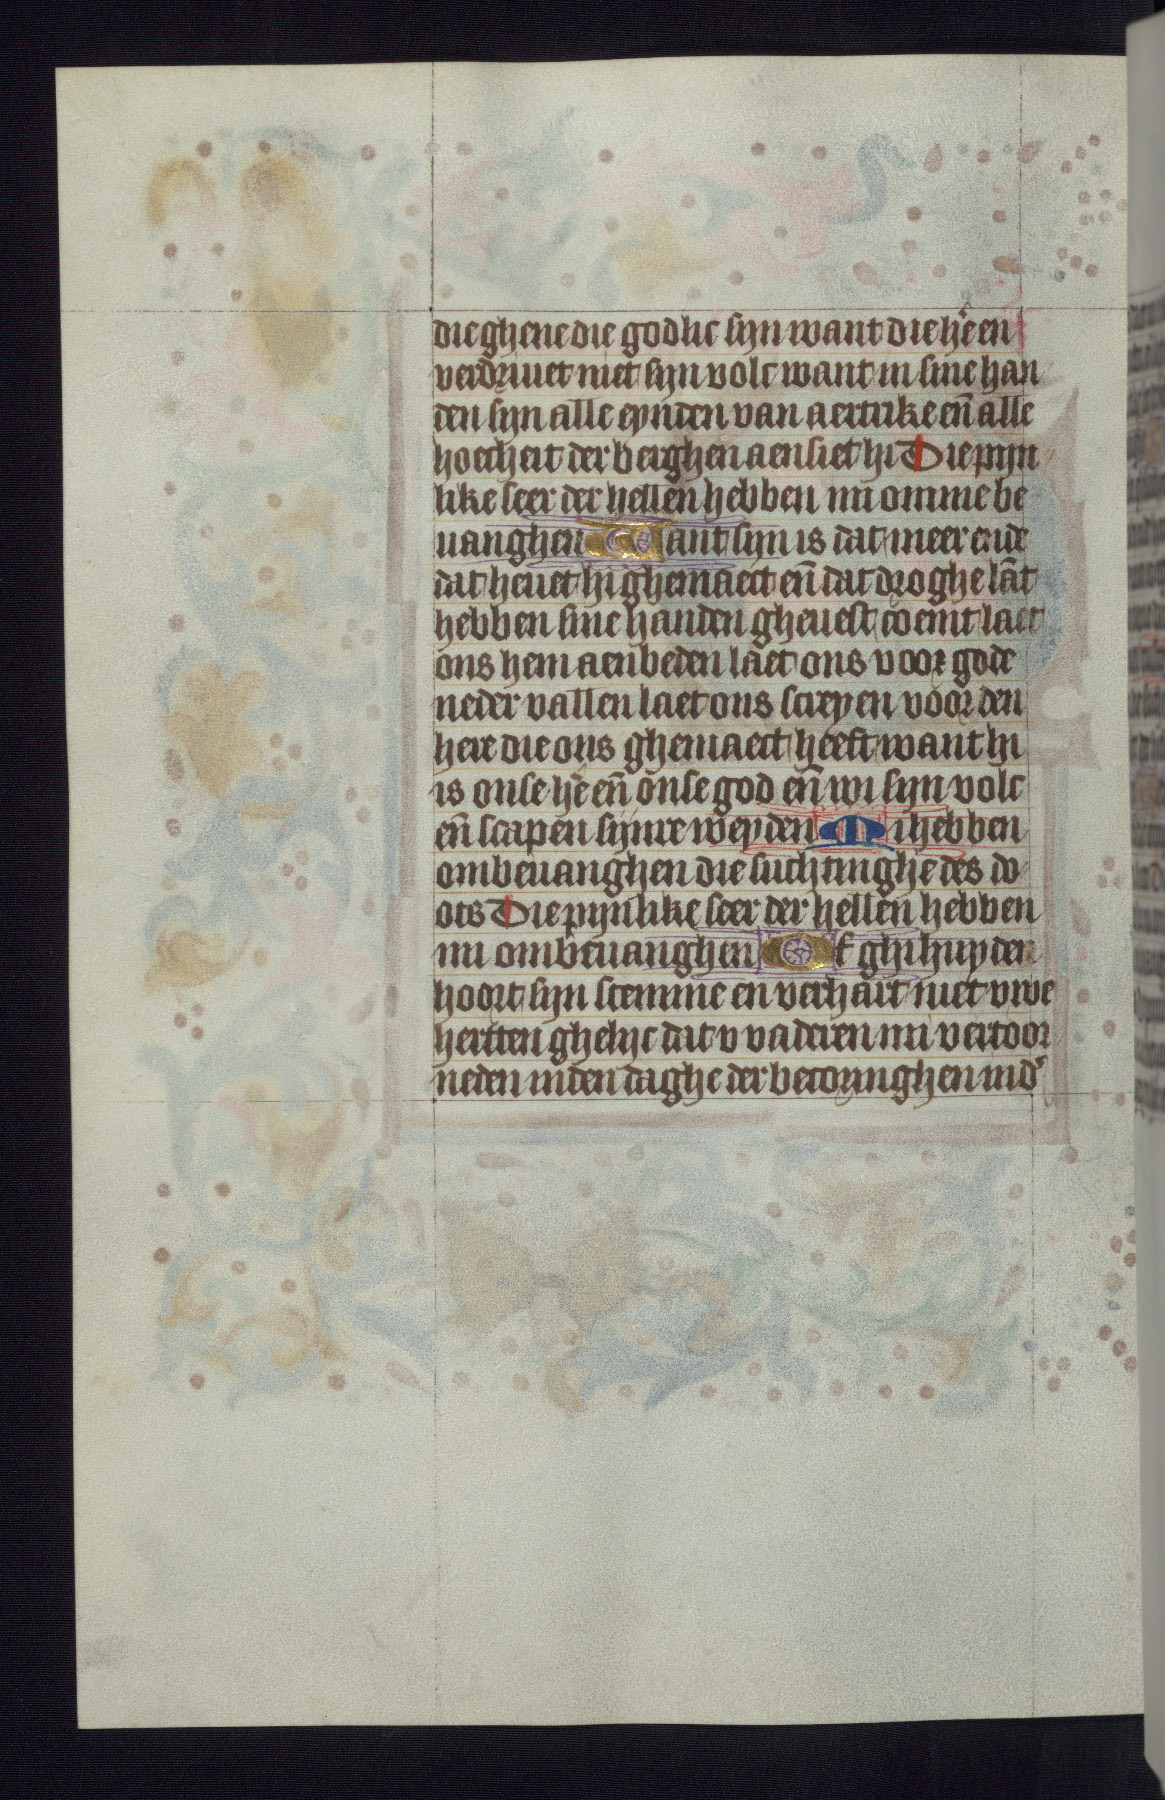 die ghene die godlic syn want die hẽ en
verdriuet niet syn volc want in sine han
den syn alle eynden van aertrike eñ alle
hoecheit der berghen aensiet hi Die pijn
like seer der hellen hebben mi omme be
uanghen Want syn is dat meer ende
dat heuet hi ghemaect eñ dat droghe lãt
hebben sine handen gheuest coemt laet
ons hem aenbeden laet ons voor gode
neder vallen laet ons screyen voor den
here die ons ghemaect heeft want hi
is onse hẽ eñ onse god eñ wi syn volc
eñ scapen synre weyden Mi hebben
ombeuanghen die suchtinghe des do
ots Die pijnlike seer der hellen hebben
mi ombeuanghen Of ghi huyden
hoort syn stemme en verhart niet vwe
hertten ghelijc dat v vaderen mi vertoor
neden inden daghe der becoringhen ind'